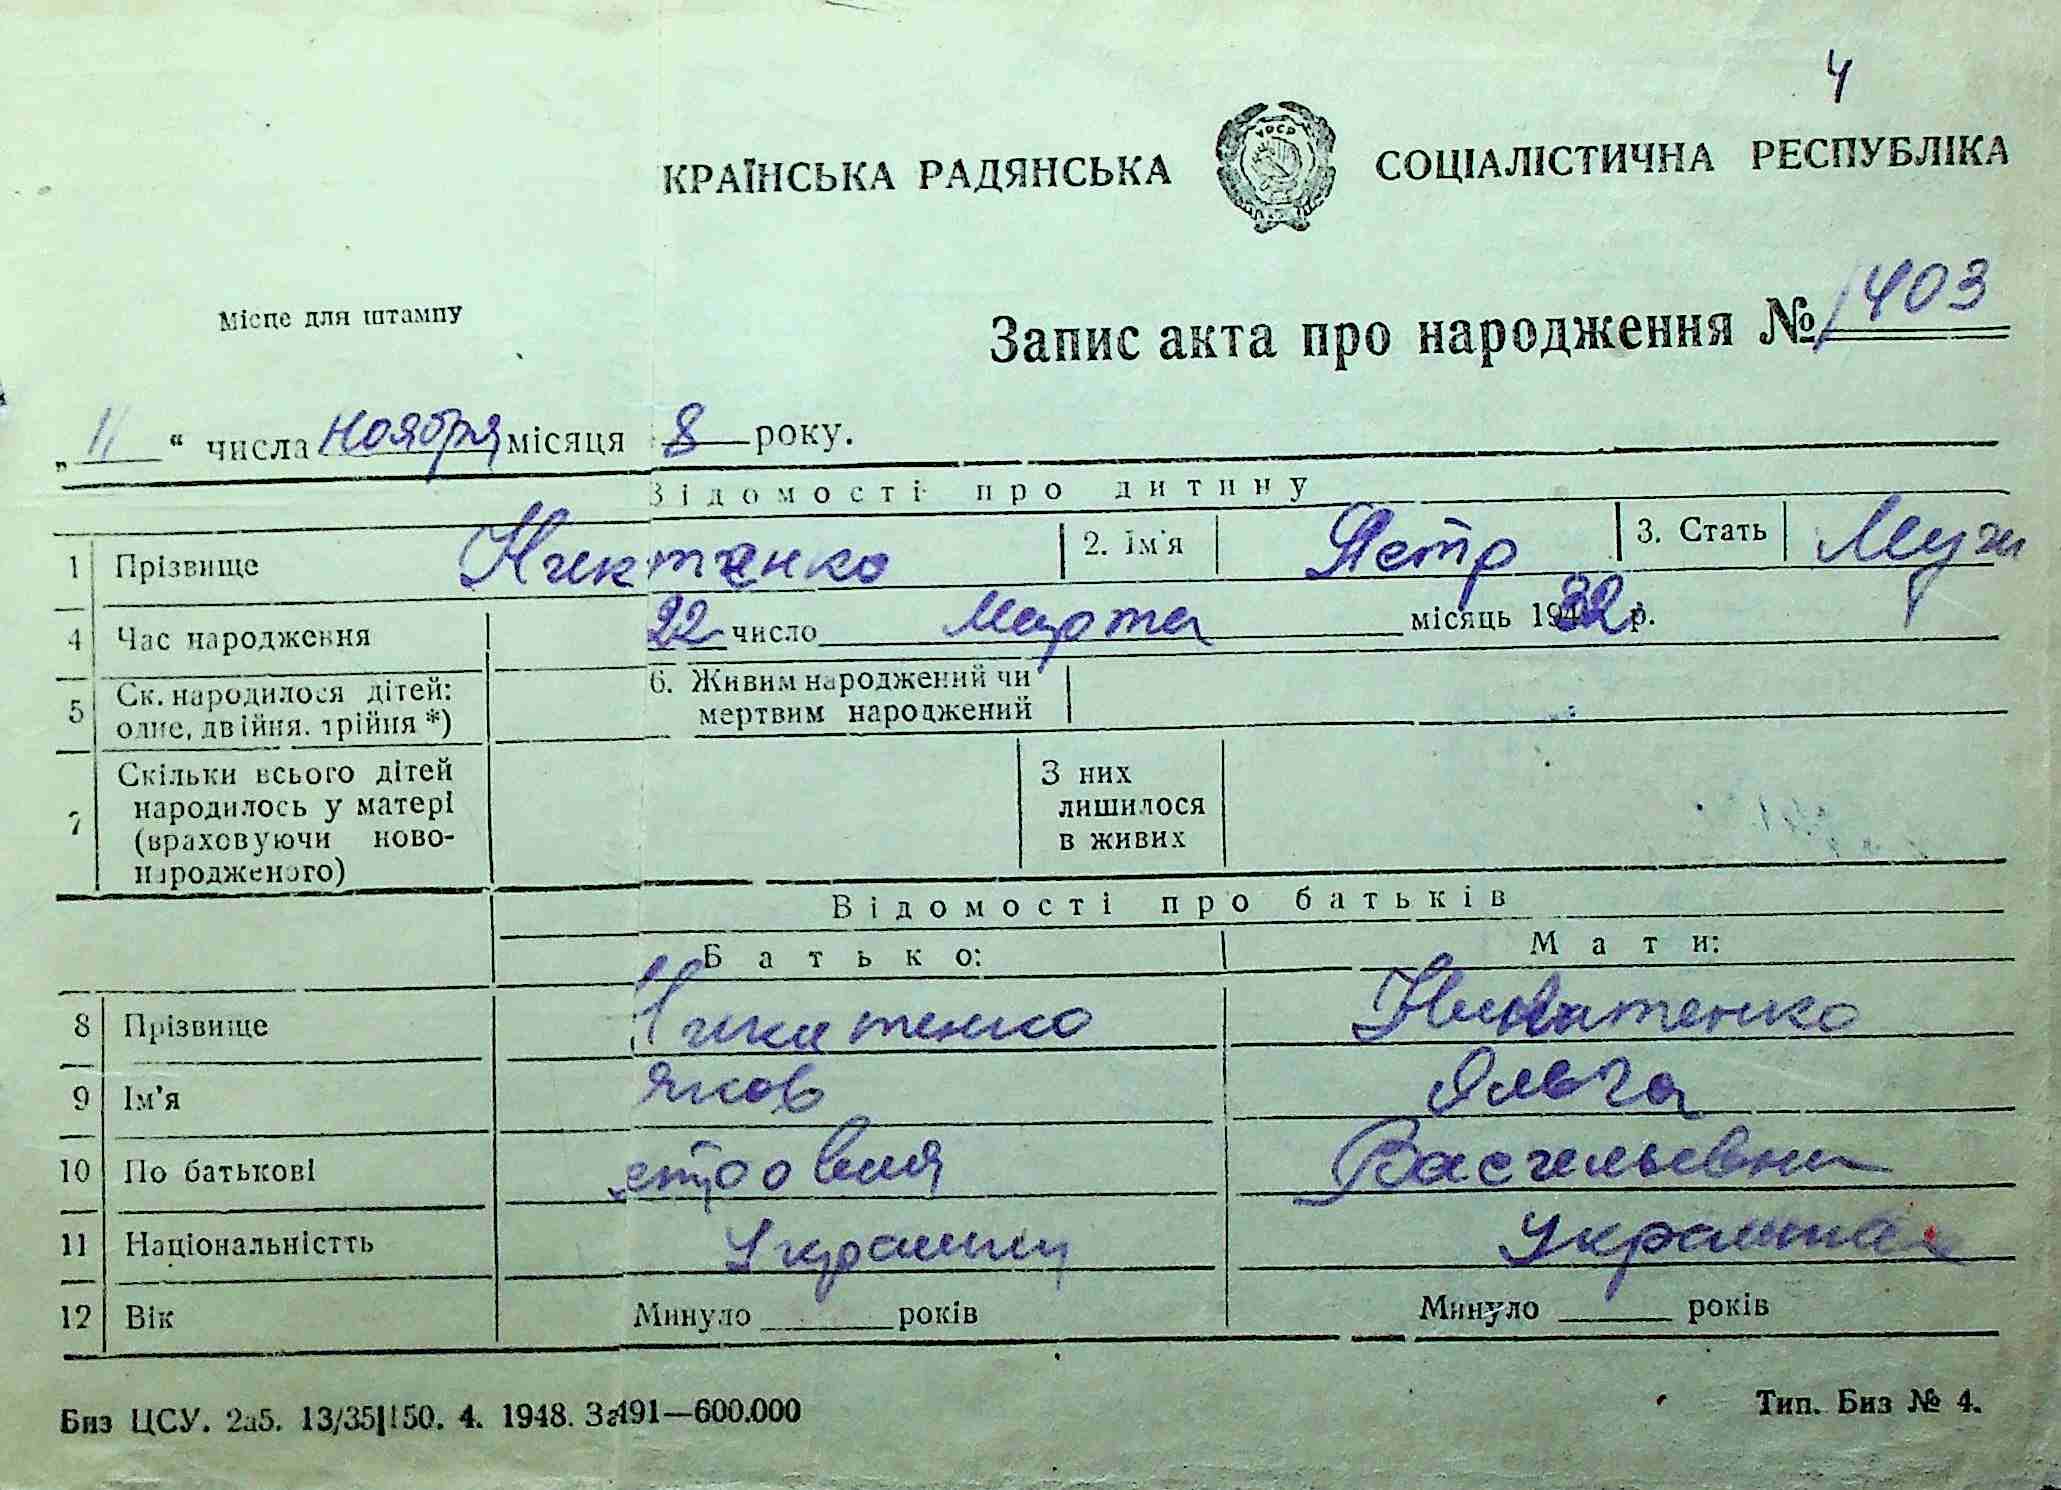 4
КРАЇНСЬКА РАДЯНСЬКА СОЦІАЛІСТИЧНА РЕСПУБЛІКА
УРСР
Місце для штампу
Запис акта про народження № 1403
„ 11 “ числа ноября місяця 8 року.
Зідомості про дитину
1 Прізвище Никтенко 2. Ім'я Петр 3. Стать Муж
4 Час народження 22 число Марта місяць 1932 р.
5 Ск. народилося дітей: одне, двійня. трійня *) 6. Живим народжений чи мертвим народжений
7 Скільки всього дітей народилось у матері (враховуючи ново-народженого) З них лишилося в живих
Відомості про батьків
Батько: Мати:
8 Прізвище Никитенко Никитенко
9 Ім'я Яков Ольга
10 По батькові Васильевна
11 Національністть Украинец Украинка
12 Вік Минуло ____ років Минуло ____ років
Биз ЦСУ. 2а5. 13/35|150. 4. 1948. За191—600.000 Тип. Биз № 4.